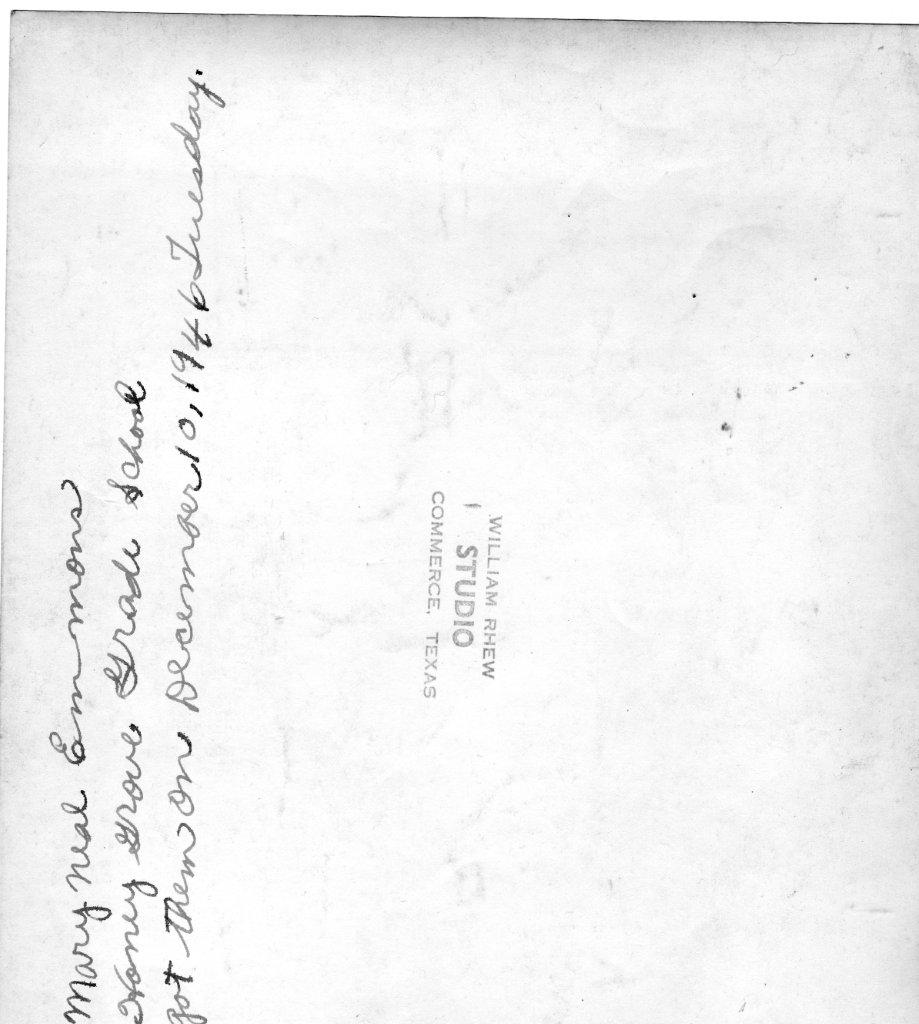 Mary Neal Emmons
Honey Grove Grade School
got them on December 10, 1946 Tuesday.
WILLIAM RHEW
STUDIO
COMMERCE, TEXAS